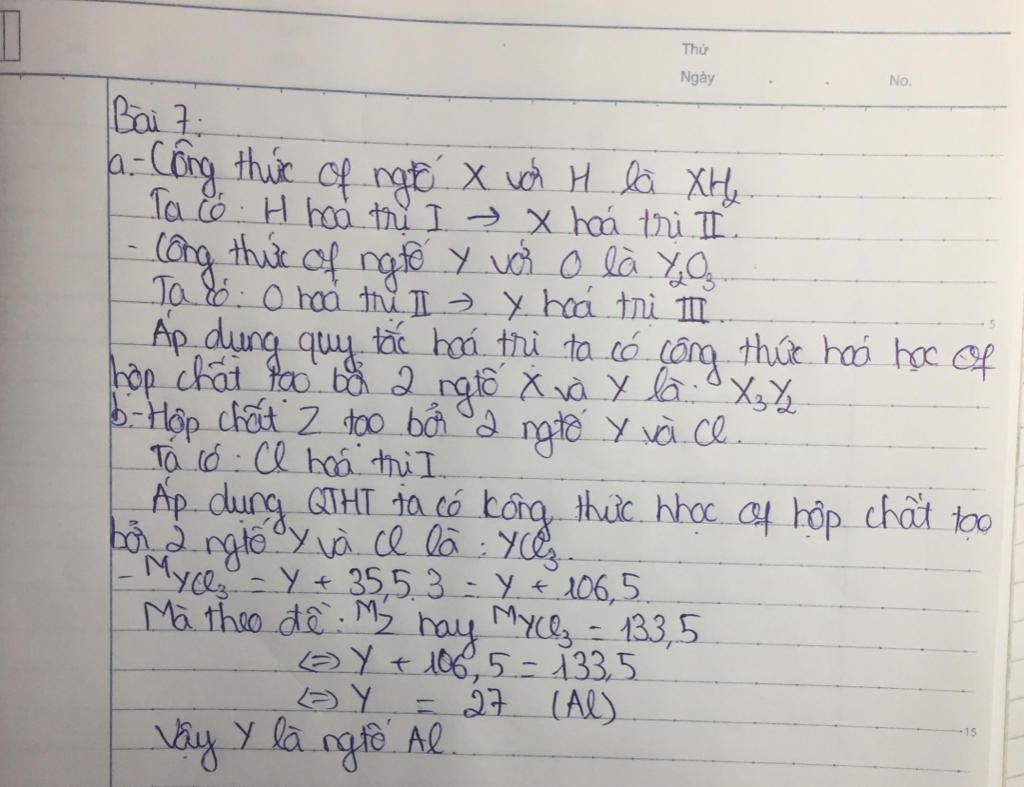 Thứ
Ngày . . No.
Bài 7:
a.- Công thức of ngtố X với H là XH₂
Ta có: H hoá trị I → X hoá trị II.
- Công thức of ngtố Y với O là Y₂O₃
Ta có: O hoá trị II → Y hoá trị III
5
Áp dụng quy tắc hoá trị ta có công thức hoá học of
hợp chất tạo bởi 2 ngtố X và Y là: X₃Y₂
b.- Hợp chất Z tạo bởi 2 ngtố Y và Cl.
Ta có: Cl hoá trị I
Áp dụng QTHT ta có công thức hhọc of hợp chất tạo
bởi 2 ngtố Y và Cl là: YCl₃
- M YCl₃ = Y + 35,5.3 = Y + 106,5
Mà theo đề: M Z hay M YCl₃ = 133,5
<=> Y + 106,5 = 133,5
<=> Y = 27 (Al)
15
Vậy Y là ngtố Al.